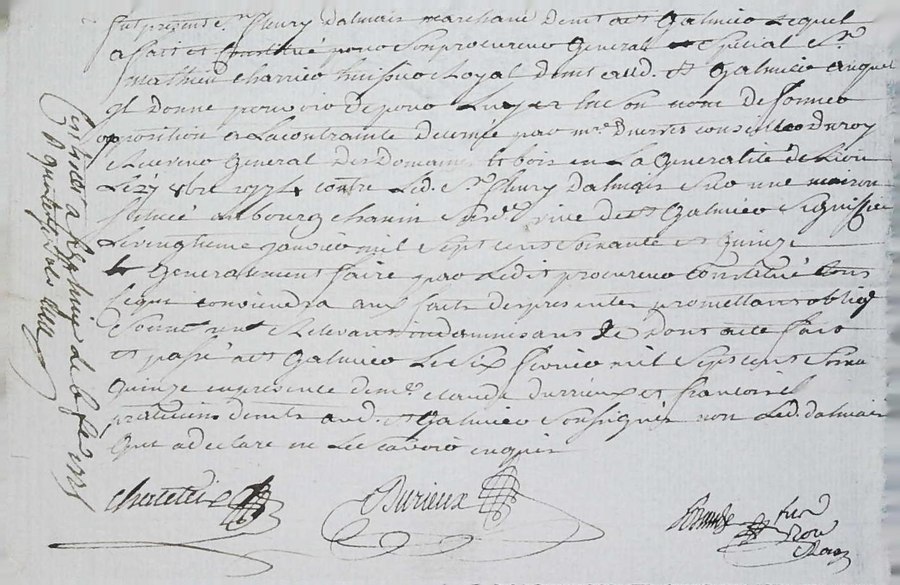 fut present Sr fleury dalmais marchand demt a St Galmier Lequel
a fait et Constitué pour son procureur General et special Sr
mathieu charrier huissier Royal demt aud. St Galmier auquel
Il donne pouvoir de pour Luy et En son nom de former
opposition a La contrainte decernée par mr. conseiller du roy
Receveur General des Domaines Et bois en La Generalité de Lion
Le 27 8bre 1774 contre Led. Sr fleury dalmais Sur une maison
Scituée au bourg chanin de St Galmier Signiffiée
Le vingtieme janvier mil Sept cens Soixante et Quinze
Et Generalement faire par Ledit procureur constitué tous
Ce qui conviendra aux faits des presentes promettant oblig
Soumt rent et Relevant indemnisant &c Dont acte fait
et passé a St Galmier Le Six fevrier mil Sept cens Soixa
Quinze en presence de me Claude durrieux et francois
praticiens demts aud. St Galmier Soussignés non Led. dalmais
Qui a declaré ne Le scavoir enquis
Durieux
Controllé a St Galmier Le 6 fev 1775